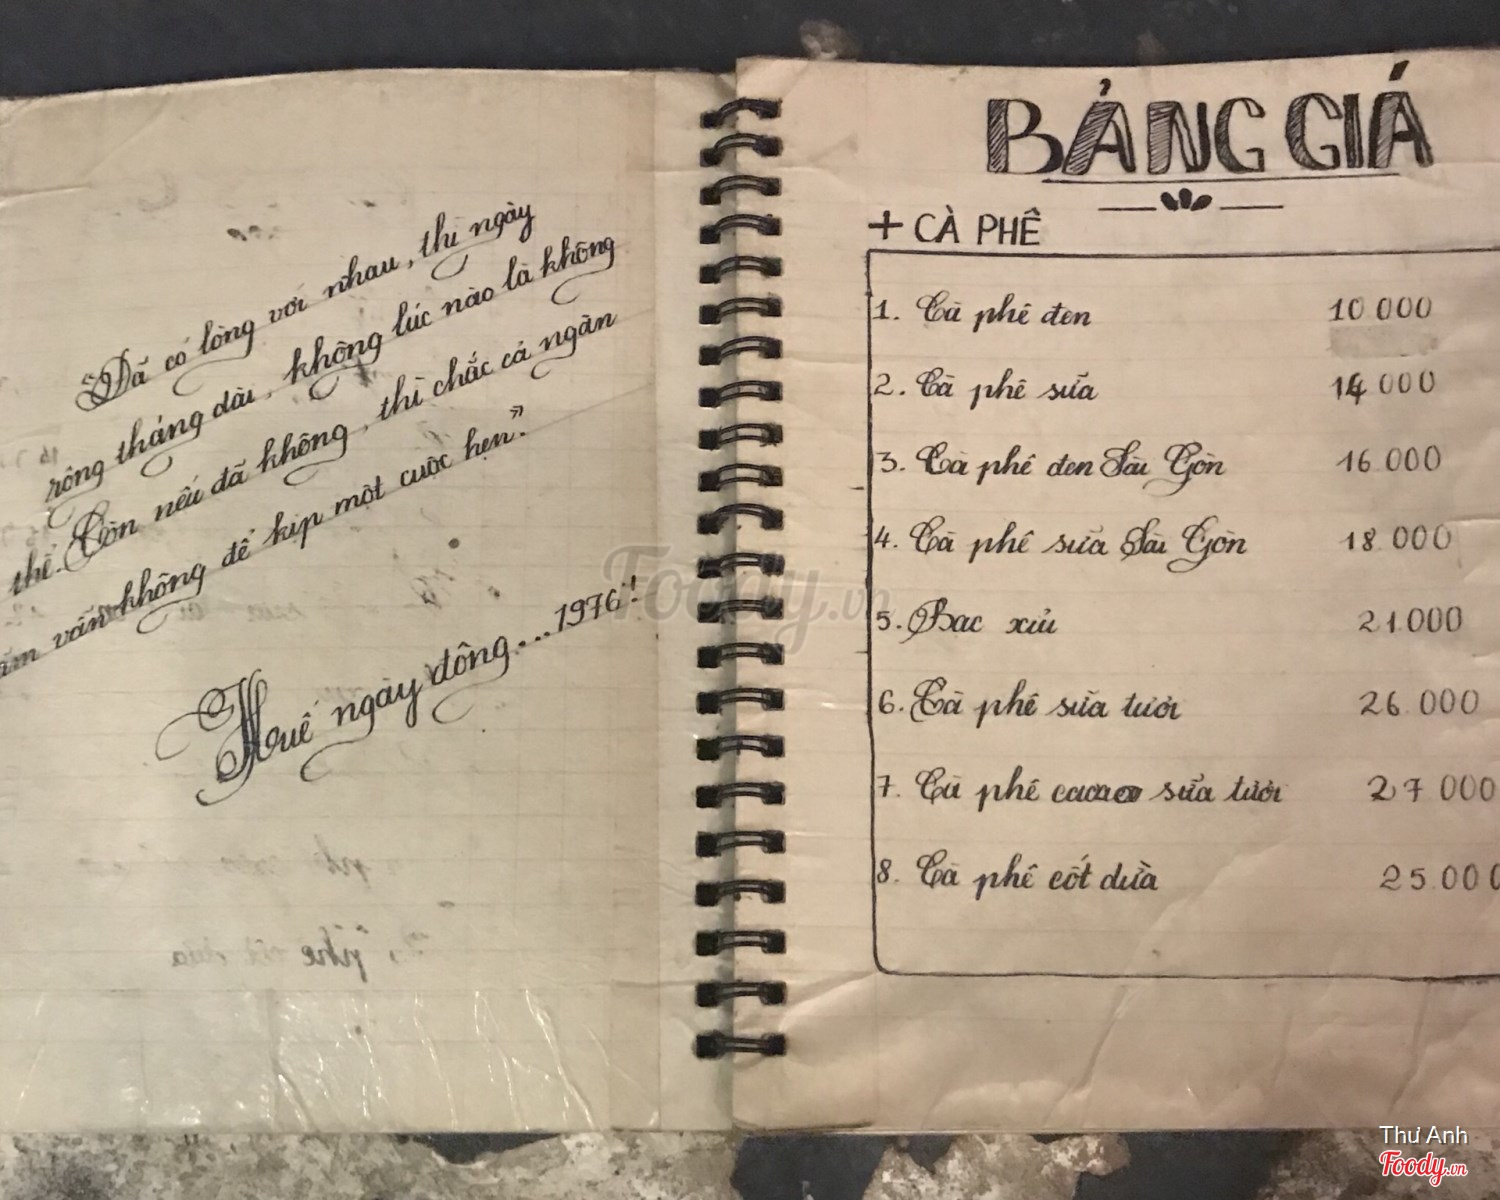 "Đã có lòng với nhau, thì ngày
rộng tháng dài, không lúc nào là không
thể. Còn nếu đã không, thì chắc cả ngàn
năm vẫn không để kịp một cuộc hẹn."
Huế ngày đông...1976!
BẢNG GIÁ
+ CÀ PHÊ
1. Cà phê đen 10 000
2. Cà phê sữa 14 000
3. Cà phê đen Sài Gòn 16 000
4. Cà phê sữa Sài Gòn 18 000
5. Bạc xỉu 21.000
6. Cà phê sữa tươi 26.000
7. Cà phê cacao sữa tươi 27 000
8. Cà phê cốt dừa 25.000
Foody.vn
Thư Anh
Foody.vn